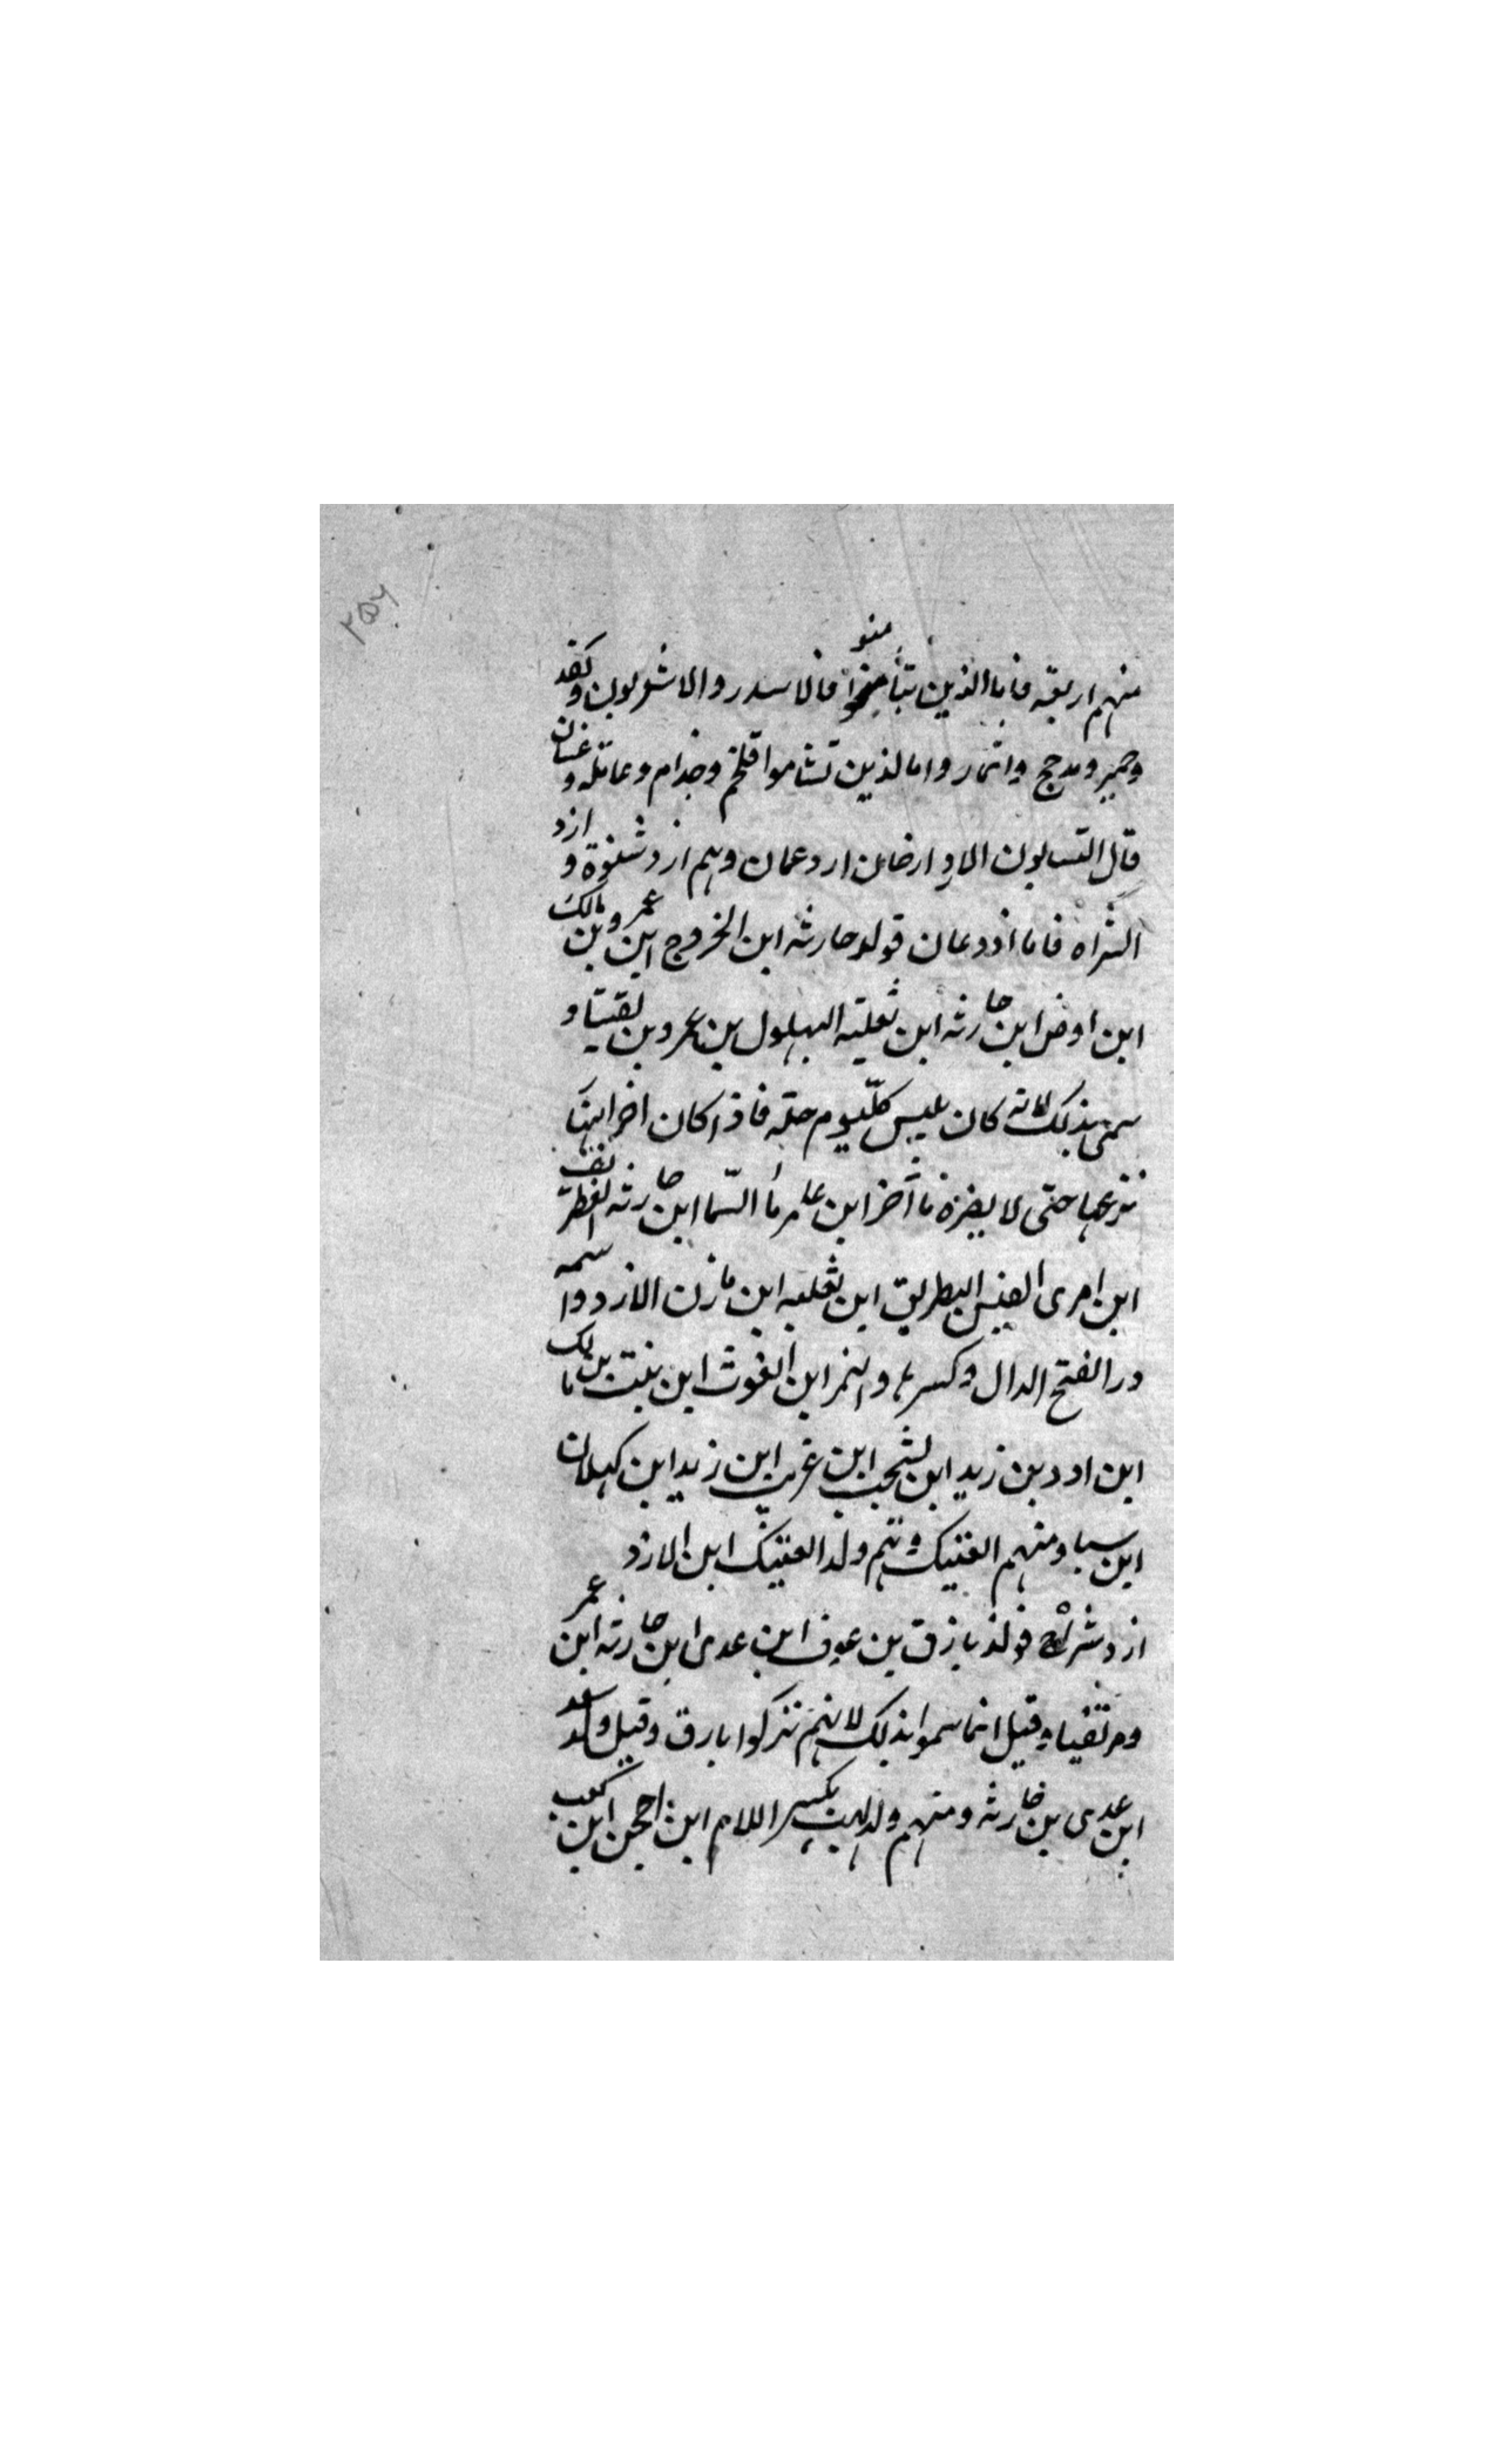 ۲۵۶
منهم اربعة فاما الذين تيامنوا فالاسدر والاشعريون و
وحمير ومدحج وانمار واما لذين تشاموا فلخم وجذام وعامله وغسان
قال التسابون الماو ارضان ازد عمان وهم ازد شنوة و ازد
الشراه فاما ازد عمان فولد حارثه ابن الخزرج ابن عمرو بن مالك
ابن اوض ابن حارثه ابن ثعلبه البهلول بن عمرو بن
سمى بذلك لانه كان يلبس كل يوم حلة فاذا كان اخر النهار
نزعها حتى لا يضره فاخر ابن عامر ما السما ابن حارثه الغطر يف
ابن امرى القيس البطريق ابن ثعلبه ابن مازن الازد واسمه
درا الفتح الدال وكسرها والنمر ابن الغوث ابن بنت بن مالك
ابن ادد بن زيد ابن لشجب ابن غريب ابن زيد ابن كهلان
ابن سبا ومنهم العتيك وهم ولد العتيك ابن الازد
ازد شراة فولد بازق بن عوف ابن عدى ابن حارثه ابن عمر
ومزتقيا وقيل انما سموا بذلك لانهم نزلوا بارق وقيل ولد سعد
ابن عدى بن حارثه ومنهم ولد لهب بكسر اللام ابن احجن ابن كعب